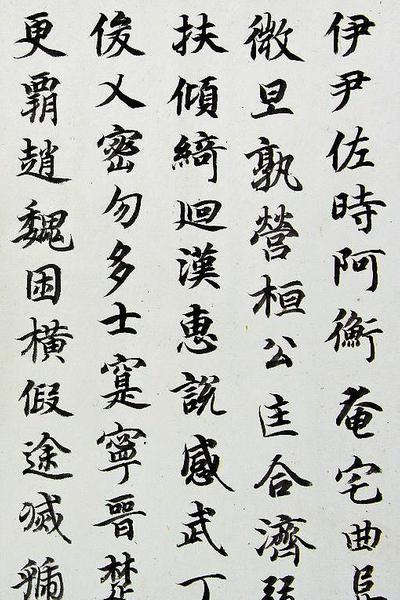 伊尹佐時阿衡奄宅曲阜
微旦孰營桓公匡合濟弱
扶傾綺迴漢惠說感武丁
俊乂密勿多士寔寧晉楚
更霸趙魏困橫假途滅虢